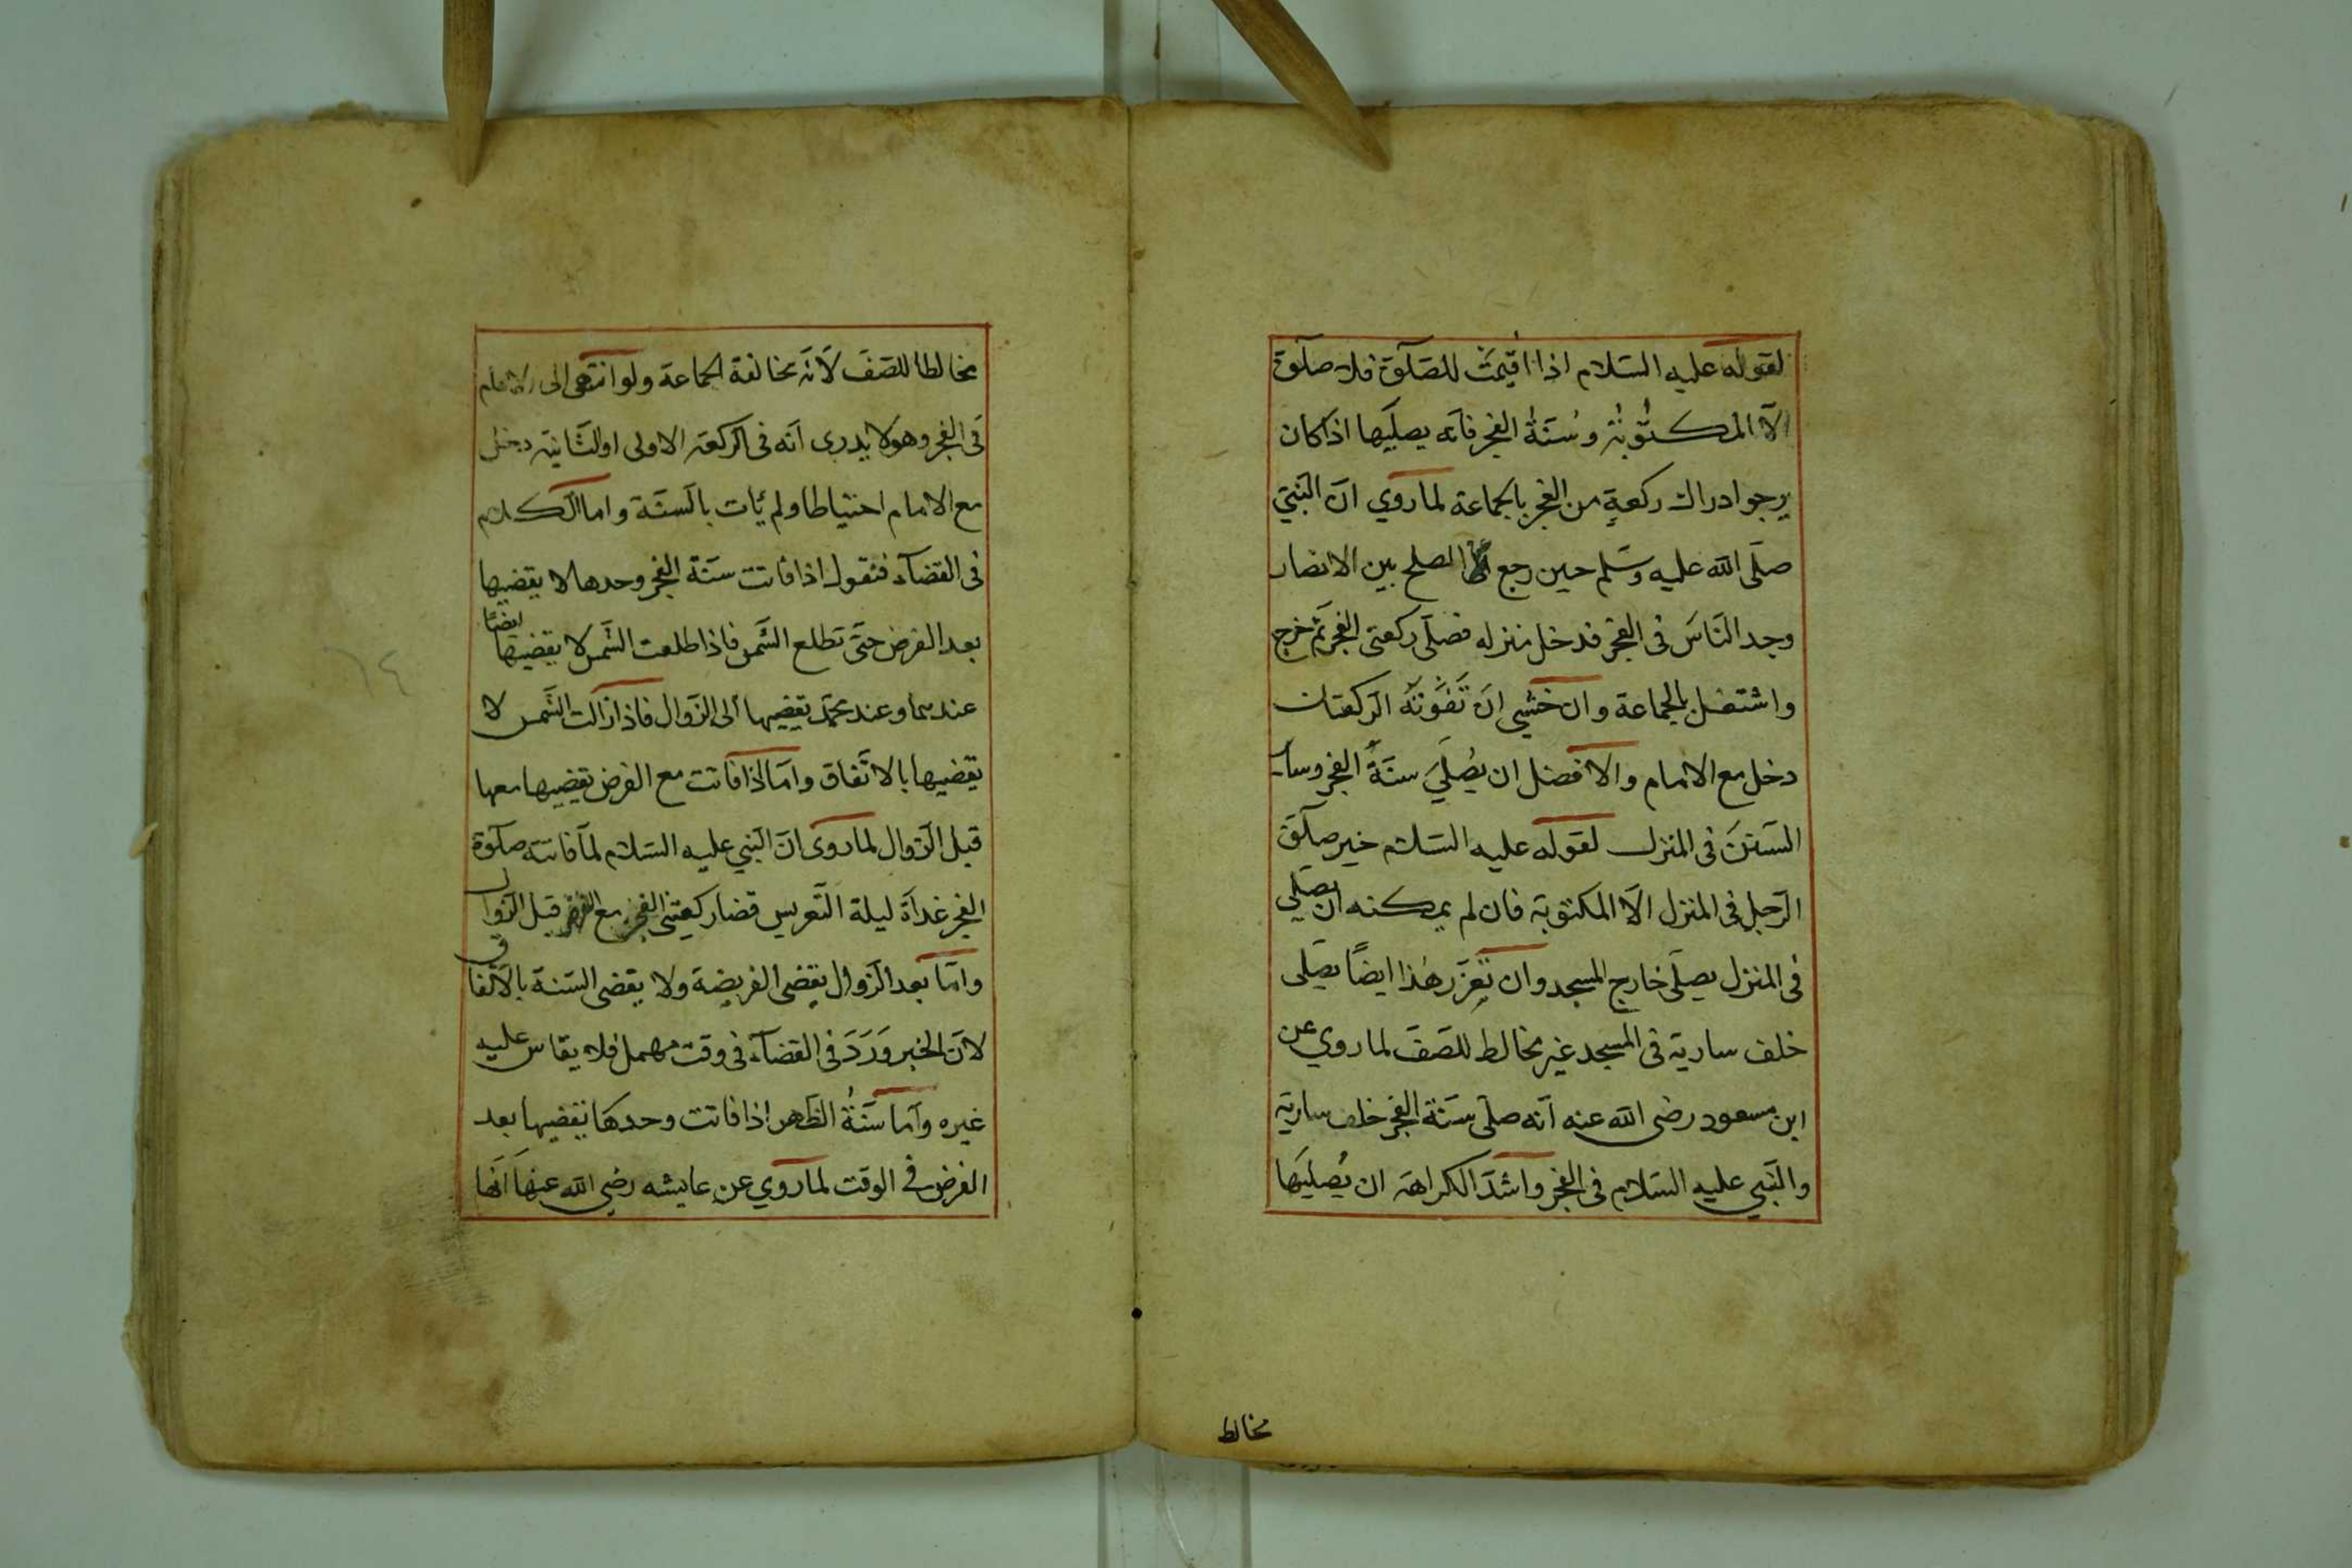 لقوله عليه السلام اذا اقيمت للصلوة فلا صلوة
الا المكتوبة وسنة الفجر فانه يصليها اذا كان
يرجوا ادراك ركعة من الفجر بالجماعة لما روي ان النبي
صلى الله عليه وسلم حين رجع الصلح بين الانصار
وجد الناس فى الفجر فدخل منزله فصلى ركعتى الفجر ثم خرج
واشتغل بالجماعة وان خشي ان تفوته الركعتان
دخل مع الامام والافضل ان يصلي سنة الفجر وسائر
السنن فى المنزل لقوله عليه السلام خير صلوة
الرجل فى المنزل الا المكتوبة فان لم يمكنه ان يصلي
فى المنزل يصلى خارج المسجد وان تعزر هذا ايضا يصلى
خلف سارية فى المسجد غير مخالط للصف لما روي عن
ابن مسعود رضى الله عنه انه صلى سنة الفجر خلف سارية
والنبي عليه السلام فى الفجر واشد الكراهة ان يصليها
مخالط
مخالطا للصف لانه مخالفة الجماعة ولو انتهى الى الامام
فى الفجر وهو لا يدرى انه فى الركعة الاولى او الثانية دخل
مع الامام احتياطا ولم يأت بالسنة واما الكلام
فى القضاء فنقول اذا فاتت سنة الفجر وحدها لا يقضيها
بعد الفرض حتى تطلع الشمس فاذا طلعت الشمس لا يقضيها ايضا
عندهما وعند محمد يقضيها الى الزوال فاذا زالت الشمس لا
يقضيها بالاتفاق واما اذا فاتت مع الفرض يقضيها معها
قبل الزوال لما روى ان النبي عليه السلام لما فاتته صلوة
الفجر غداة ليلة التعريس قضا ركعتى الفجر مع الفرض قبل الزوال
واما بعد الزوال يقضى الفريضة ولا يقضى السنة بالاتفاق
لان الخبر ورد فى القضاء فى وقت مهمل فلا يقاس عليه
غيره واما سنة الظهر اذا فاتت وحدها يقضيها بعد
الفرض فى الوقت لما روي عن عايشه رضى الله عنها انها
٦٤